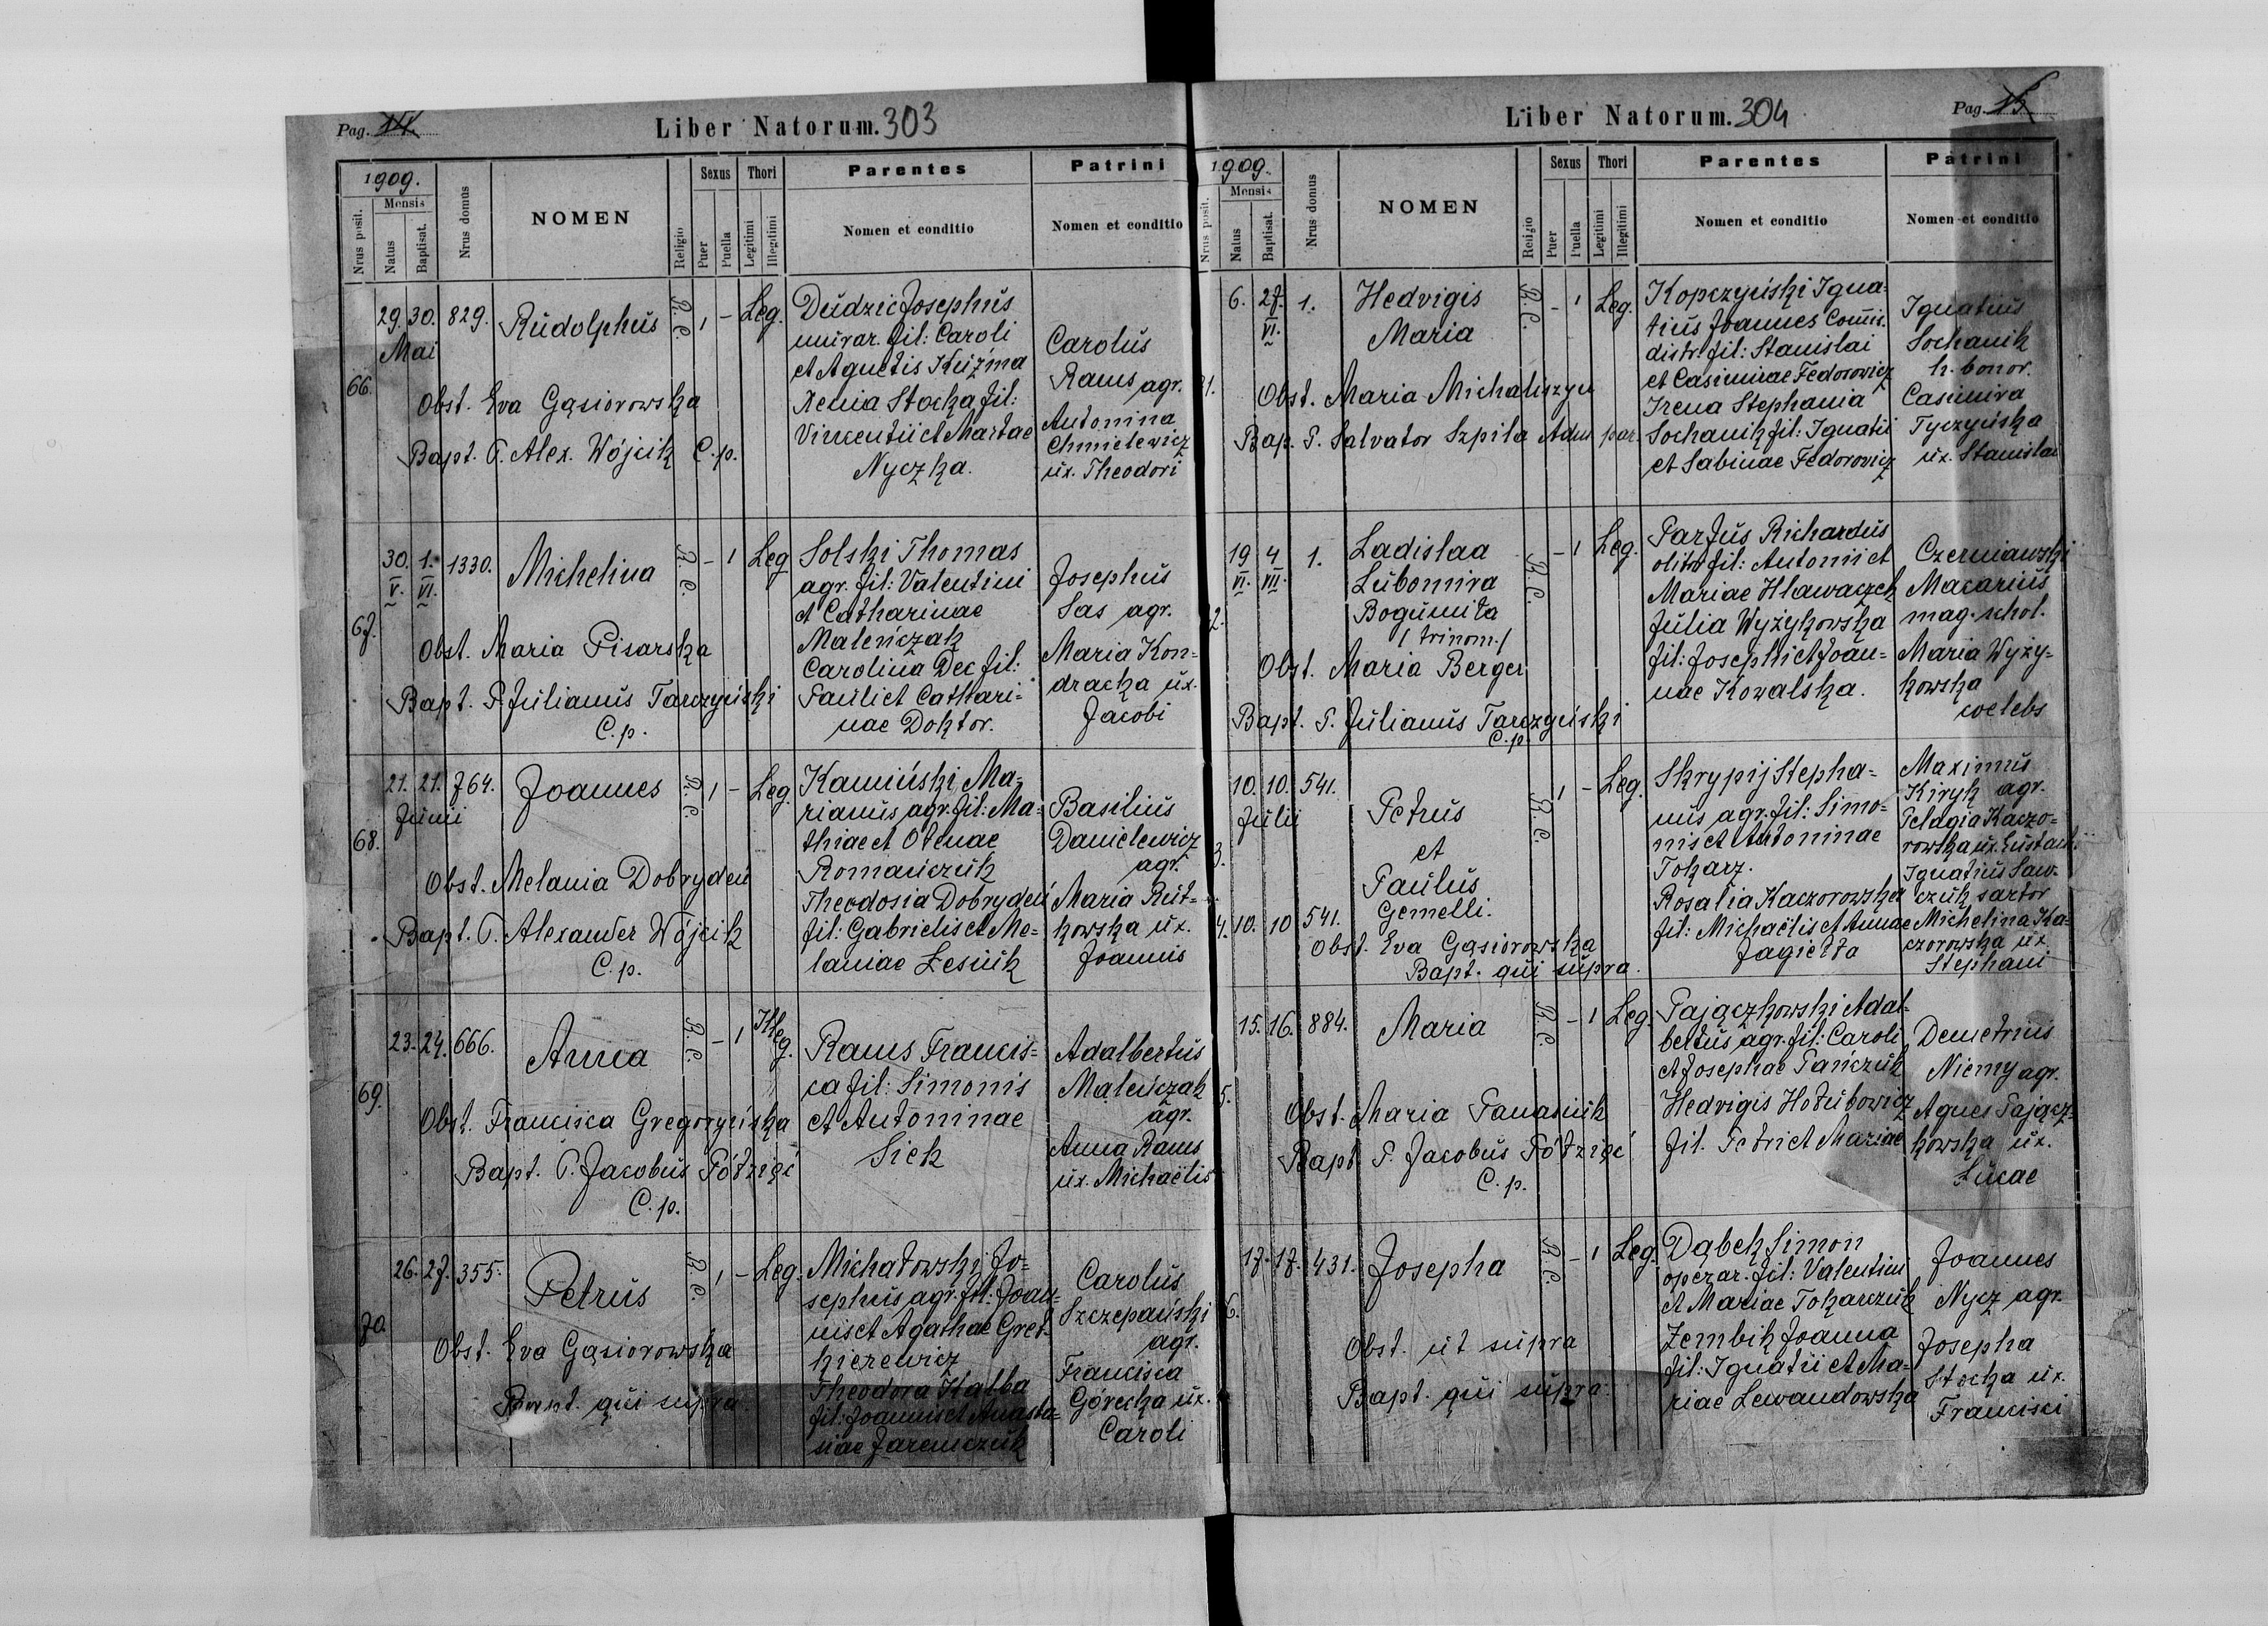 Pag. 14.
Liber Natorum. 303
1909.
Mensis
Nrus posit.
Natus
Baptisat.
Nrus domus
NOMEN
Religio
Sexus
Puer
Puella
Thori
Legitimi
Illegitimi
Parentes
Nomen et conditio
Patrini
Nomen et conditio
66.
29. 30. 829. Rudolphus R. C. 1 – Leg.
Mai
Obst. Eva Gąsiorowska
Bapt. P. Alex. Wójcik C. p.
Dudzic Josephus
murar. fil: Caroli
et Agnetis Kuźma
Xenia Stocka fil:
Vincentii et Martae
Nyczka.
Carolus
Rams agr.
Antonina
Chmielewicz
ux. Theodori
67.
30. 1. 1330. Michelina R. C. – 1 Leg
V. VI.
Obst. Maria Pisarska
Bapt. P. Julianus Tarczyński
C. p.
Solski Thomas
agr. fil: Valentini
et Catharinae
Maleńczak
Carolina Dec fil:
Pauli et Cathari-
nae Doktor.
Josephus
Sas agr.
Maria Kon-
dracka ux.
Jacobi
68.
21. 21. 764. Joannes R. C. 1 – Leg.
Junii
Obst. Melania Dobrydeń
Bapt. P. Alexander Wójcik
C. p.
Kamiński Ma-
rianus agr. fil: Ma-
thiae et Olenae
Romańczuk
Theodosia Dobrydeń
fil: Gabrielis et Me-
laniae Lesiuk
Basilius
Danielewicz
agr.
Maria Rut-
kowska ux.
Joannis
69.
23. 24. 666. Anna R. C. – 1 Illeg.
Obst. Francisca Gregoryńska
Bapt. P. Jacobus Półzięć
C. p.
Rams Francis-
ca fil: Simonis
et Antoninae
Sich
Adalbertus
Maleńczak
agr.
Anna Rams
ux. Michaëlis
70.
26. 27. 355. Petrus R. C. 1 – Leg.
Obst. Eva Gąsiorowska
Bapt. qui supra
Michałowski Jo-
sephus agr. fil: Joan-
nis et Agathae Gret-
kierewicz
Theodora Halba
fil: Joannis et Anasta-
siae Jaremczuk
Carolus
Szczepański
agr.
Francisca
Górecka ux.
Caroli
Liber Natorum. 304
Pag. 15
1909.
Mensis
Nrus posit.
Natus
Baptisat.
Nrus domus
NOMEN
Religio
Sexus
Puer
Puella
Thori
Legitimi
Illegitimi
Parentes
Nomen et conditio
Patrini
Nomen et conditio
1.
6. 27. 1. Hedvigis R. C. – 1 Leg.
VI. Maria
Obst. Maria Michaliszyn
Bap. P. Salvator Szpila Adm par.
Kopczyński Igna-
tius Joannes Comis.
distr. fil: Stanislai
et Casimirae Fedorowicz
Irena Stephania
Sochanik fil: Ignatii
et Sabinae Fedorovicz
Ignatius
Sochanik
h. bonor.
Casimira
Tyczyńska
ux. Stanislai
2.
19 4 1. Ladislaa R. C. – 1 Leg.
VI. VII. Lubomira
Bogumiła
/ trinom./
Obst. Maria Berger
Bapt. P. Julianus Tarczyński
C. p.
Parfus Richardus
fil: Antonii et
Mariae Hlawaczek
Julia Wyżykowska
fil: Josephi et Joan-
nae Kowalska.
Czerniawski
Macarius
mag. schol.
Maria Wyży-
kowska
coelebs
3.
10. 10. 541. Petrus R. C. 1 – Leg.
Julii
et
Paulus
Gemelli.
4. 10. 10 541.
Obst. Eva Gąsiorowska
Bapt. qui supra.
Skrypij Stepha-
nus agr. fil: Simo-
nis et Antoninae
Tokarz.
Rosalia Kaczorowska
fil: Michaëlis et Annae
Jagiełła
Maximus
Kiryk agr.
Pelagia Kaczo-
rowska ux. Eustachii
Ignatius Saw-
czuk sartor
Michelina Ka-
czorowska ux
Stephani
5.
15. 16. 884. Maria R. C. – 1 Leg.
Obst. Maria Panasiuk
Bapt P. Jacobus Półzięć
C. p.
Pajączkowski Adal-
bertus agr. fil: Caroli
et Josephae Pańczuk
Hedvigis Hołubowicz
fil. Petri et Mariae
Demetrius
Niemy agr.
Agnes Pającz-
kowska ux.
Lucae
6.
17. 17. 431. Josepha R. C. – 1 Leg.
Obst. ut supra
Bapt. qui supra.
Dąbek Simon
opczar. fil: Valentini
et Mariae Tokarczuk
Zembik Joanna
fil: Ignatii et Ma-
riae Lewandowska
Joannes
Nycz agr.
Josepha
Stocka ux.
Francisci